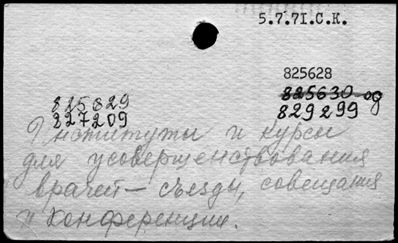 5.7.71.С.К.
825628
825629
825630 од
827209
829299
Институты и курсы
для усовершенствования
врачей — съезды, совещания
и конференции.